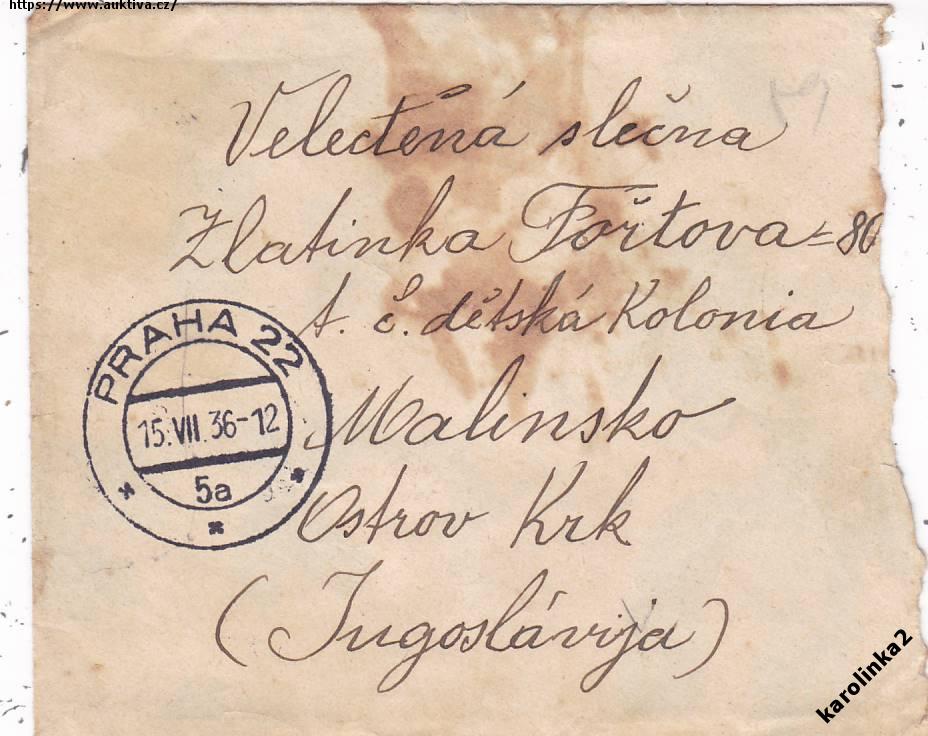 https://www.auktiva.cz/
Velectěná slečna
Zlatinka Fořtova = 86
t. č. dětská Kolonia
Malinsko
Ostrov Krk
(Jugoslávija)
PRAHA 22
15.VII.36-12
5a
karolinka2